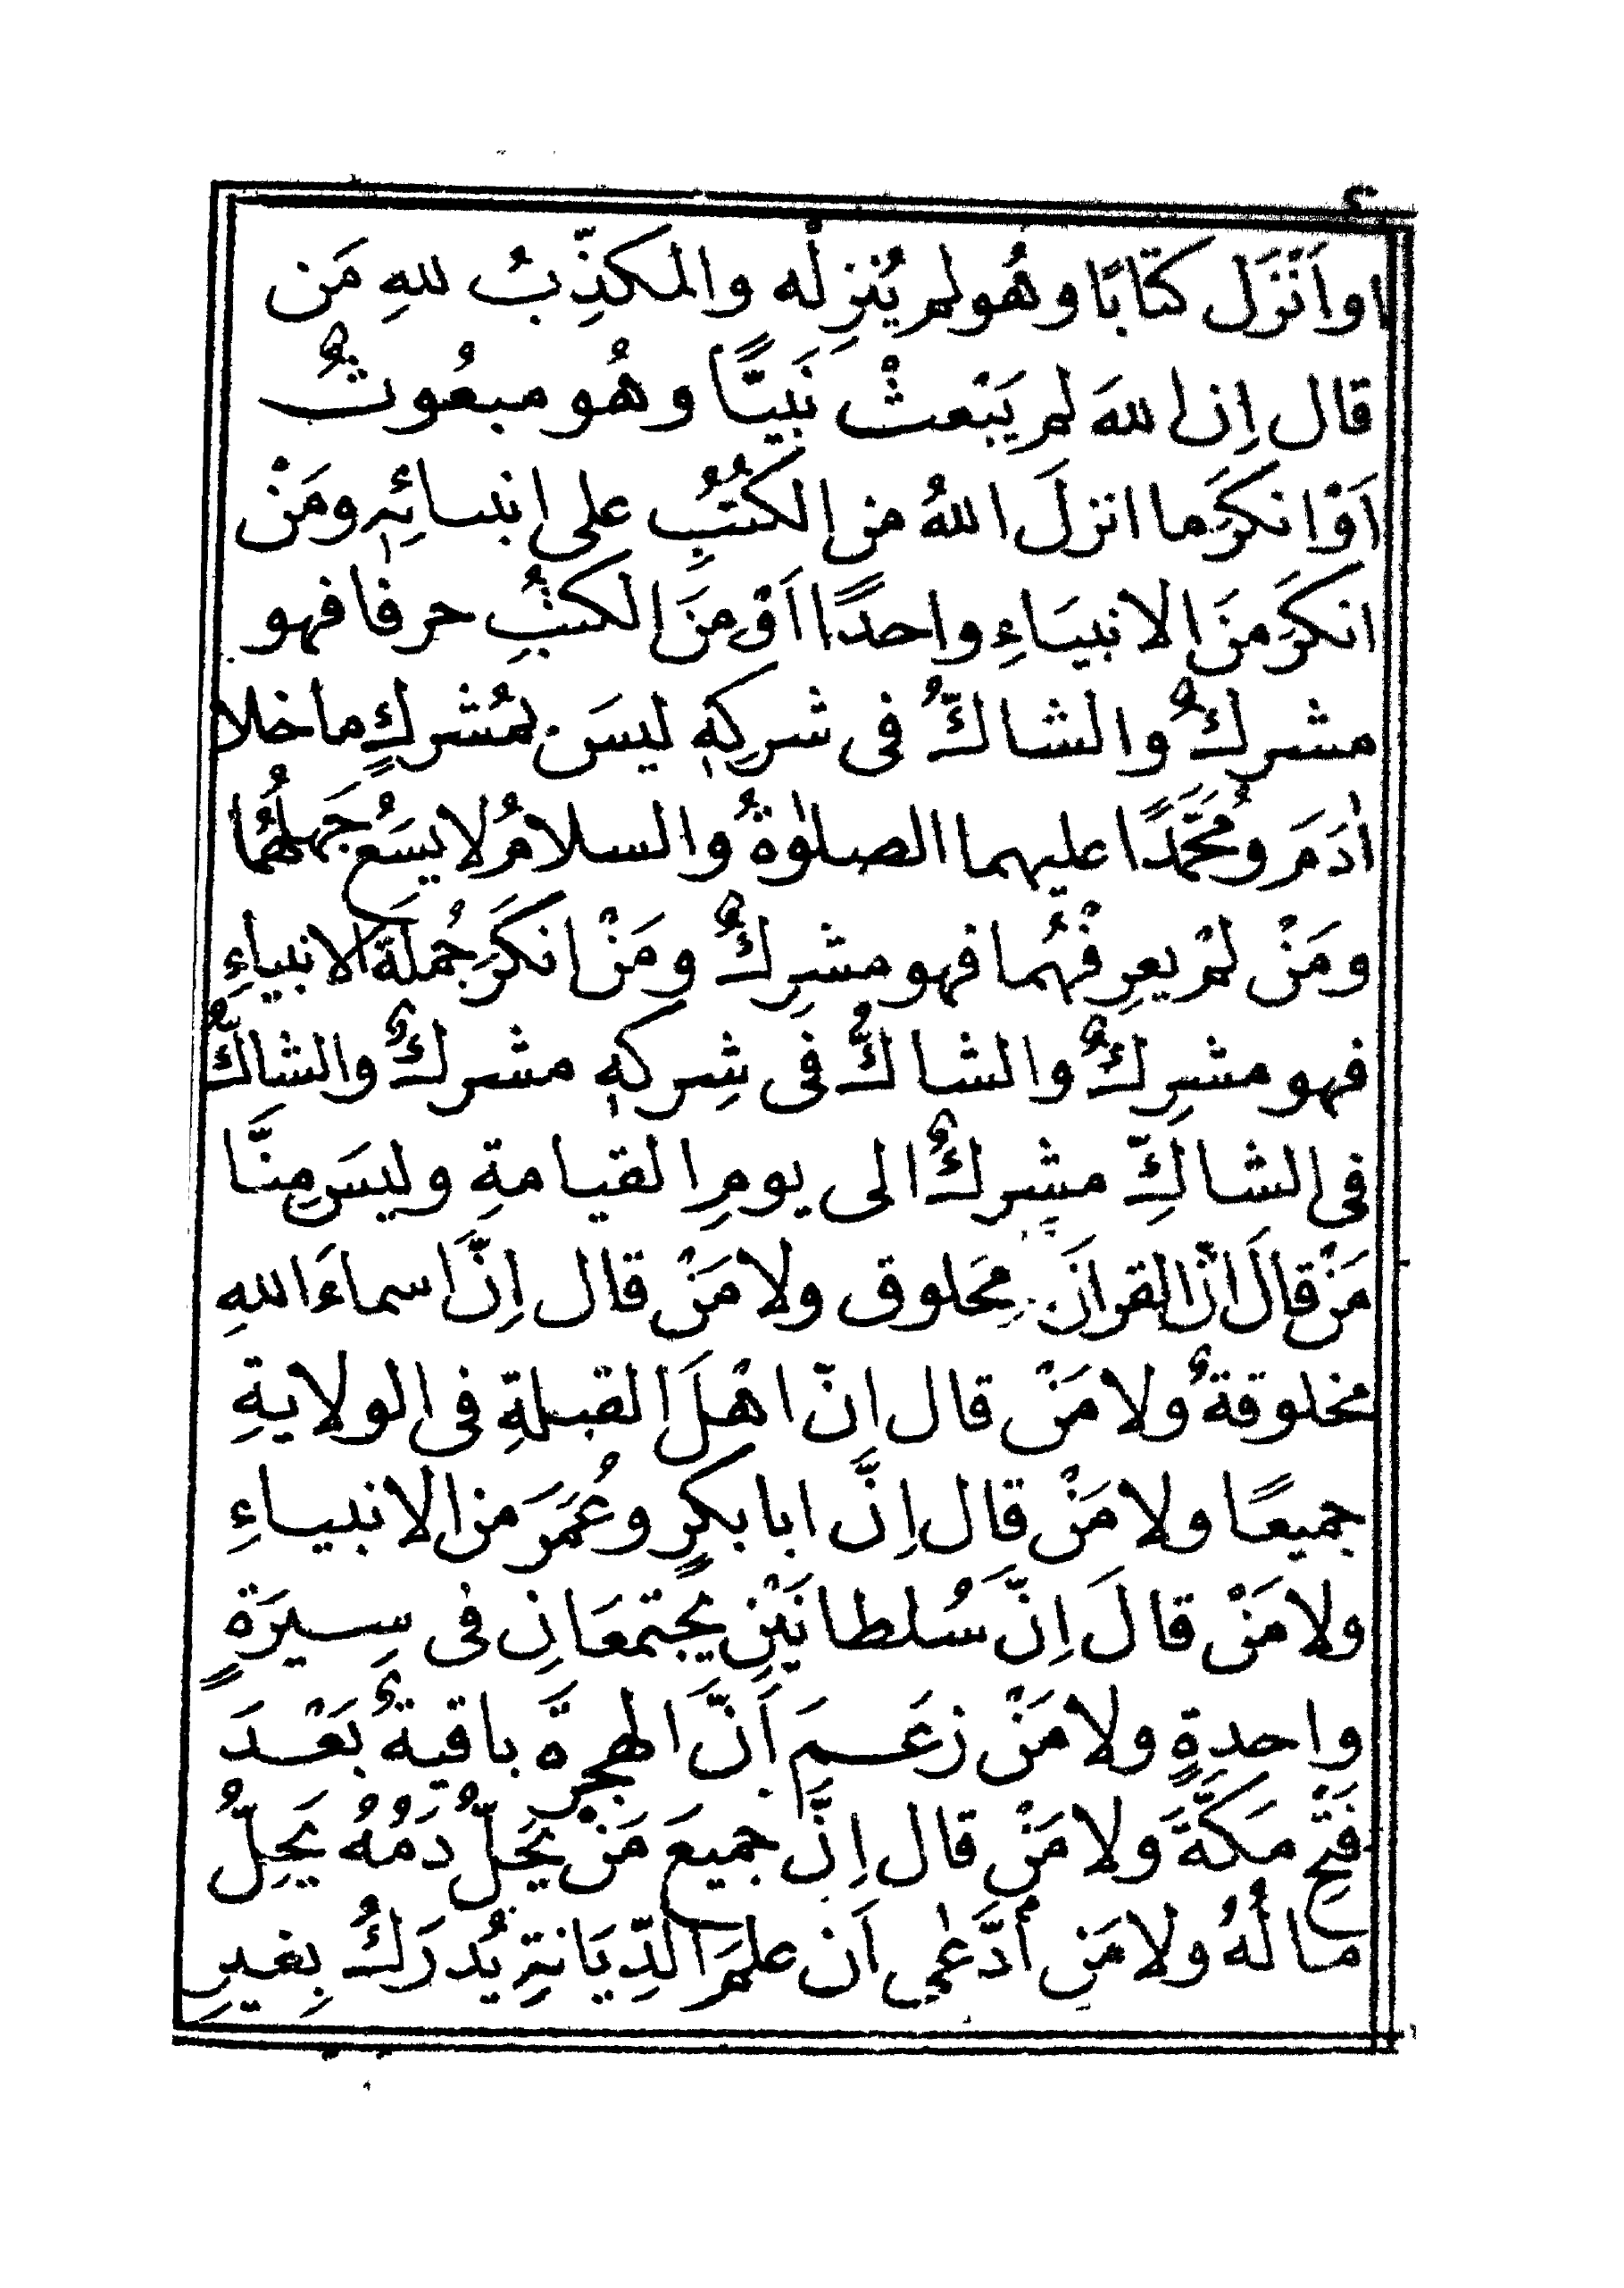 ٤
اواَنْزَل كتابًا وهُولم يُنزِلْه والمكذِّبُ للهِ مَن
قال اِن اللهَ لم يَبْعثْ نَبيًّا وهُو مبعُوثٌ
اَوْانكرَما انزلَ اللهُ من الكتُبِ على انبيائِهٖ ومَنْ
انكرَمنَ الانبيَاءِ واحدًا اَوْمنَ الكتبِ حرفا فهو
مشركٌ والشاكُّ فى شركِهٖ ليسَ بمُشركٍ ماخلا
اٰدَمَ ومُحَمَّدًا عليهما الصلوٰةُ والسلامُ لايسَعُ جَهلهُما
ومَنْ لمْ يعرِفْهُما فهو مشرِكٌ ومَنْ انكرَ جُملَةَ الانبياءِ
فهو مشرِكٌ والشاكُّ فى شِركهٖ مشركٌ والشاكُّ
فى الشاكِّ مشركٌ الى يومِ القيامةِ وليسَ مِنَّا
مَنْ قالَ انّ القرانَ مخلوق ولامَنْ قال اِنَّ اسماءَ اللهِ
مخلوقةٌ ولامَنْ قال انّ اهْلَ القبلةِ فى الولايةِ
جميعًا ولامَنْ قال اِنَّ ابا بكرٍ وعُمَرَ من الانبياءِ
ولامَنْ قالَ اِنَّ سُلطانَيْنِ يجتمعَانِ فى سِيرَةٍ
واحدِةٍ ولامَنْ زعَمَ اَنَّ الهجرةَ باقيةٌ بَعْدَ
فَتْحِ مَكَّةَ ولامَنْ قال اِنَّ جميعَ مَنْ يَحَلُّ دَمُهُ يَحِلُّ
مالُهُ ولامَن أدَّعٰى اَن علمَ الدِّيَانةِ يُدرَكُ بِغيرِ